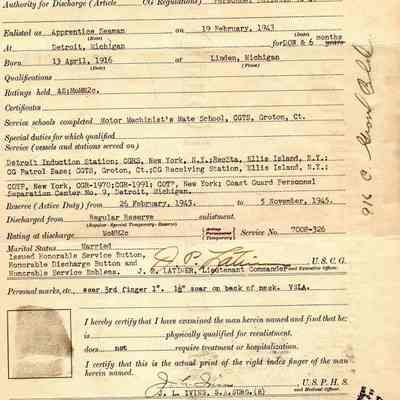 Authority for Discharge (Article CG Regulations)
Enlisted as Apprentice Seaman on 19 February, 1943
(Rate) (Date)
At Detroit, Michigan for DOW & 6 months years
Born 13 April, 1916 at Linden, Michigan
(Date) (Place)
Qualifications
Ratings held AS;MoMM2c.
Certificates
Service schools completed Motor Machinist's Mate School, CGTS, Groton, Ct.
Special duties for which qualified
Service (vessels and stations served on)
Detroit Induction Station; CGRS, New York, N.Y.;RecSta, Ellis Island, N.Y.;
CG Patrol Base; CGTS, Groton, Ct.;CG Receiving Station, Ellis Island, N.Y.;
New York, CGR-1970;CGR-1991; COTP, New York; Coast Guard Personnel
Separation Center No. 9, Detroit, Michigan.
Reserve (Active Duty) from 26 February, 1943. to 5 November, 1945.
Discharged from Regular Reserve enlistment.
(Regular - Special Temporary - Reserve)
Rating at discharge MoMM2c (Permanent) (Temporary) Service No. 7002-326
Marital Status Married
Issued Honorable Service Button,
Honorable Discharge Button and
Honorable Service Emblems.
Lieutenant Commander U. S. C. G.
and Executive Officer.
Personal marks, etc. scar 3rd finger 1". 1½" scar on back of neck. VSLA.
I hereby certify that I have examined the man herein named and find that he:
is physically qualified for reenlistment.
does not require treatment or hospitalization.
I certify that this is the actual print of the right index finger of the man
herein named.
U. S. P. H. S.
and Medical Officer.